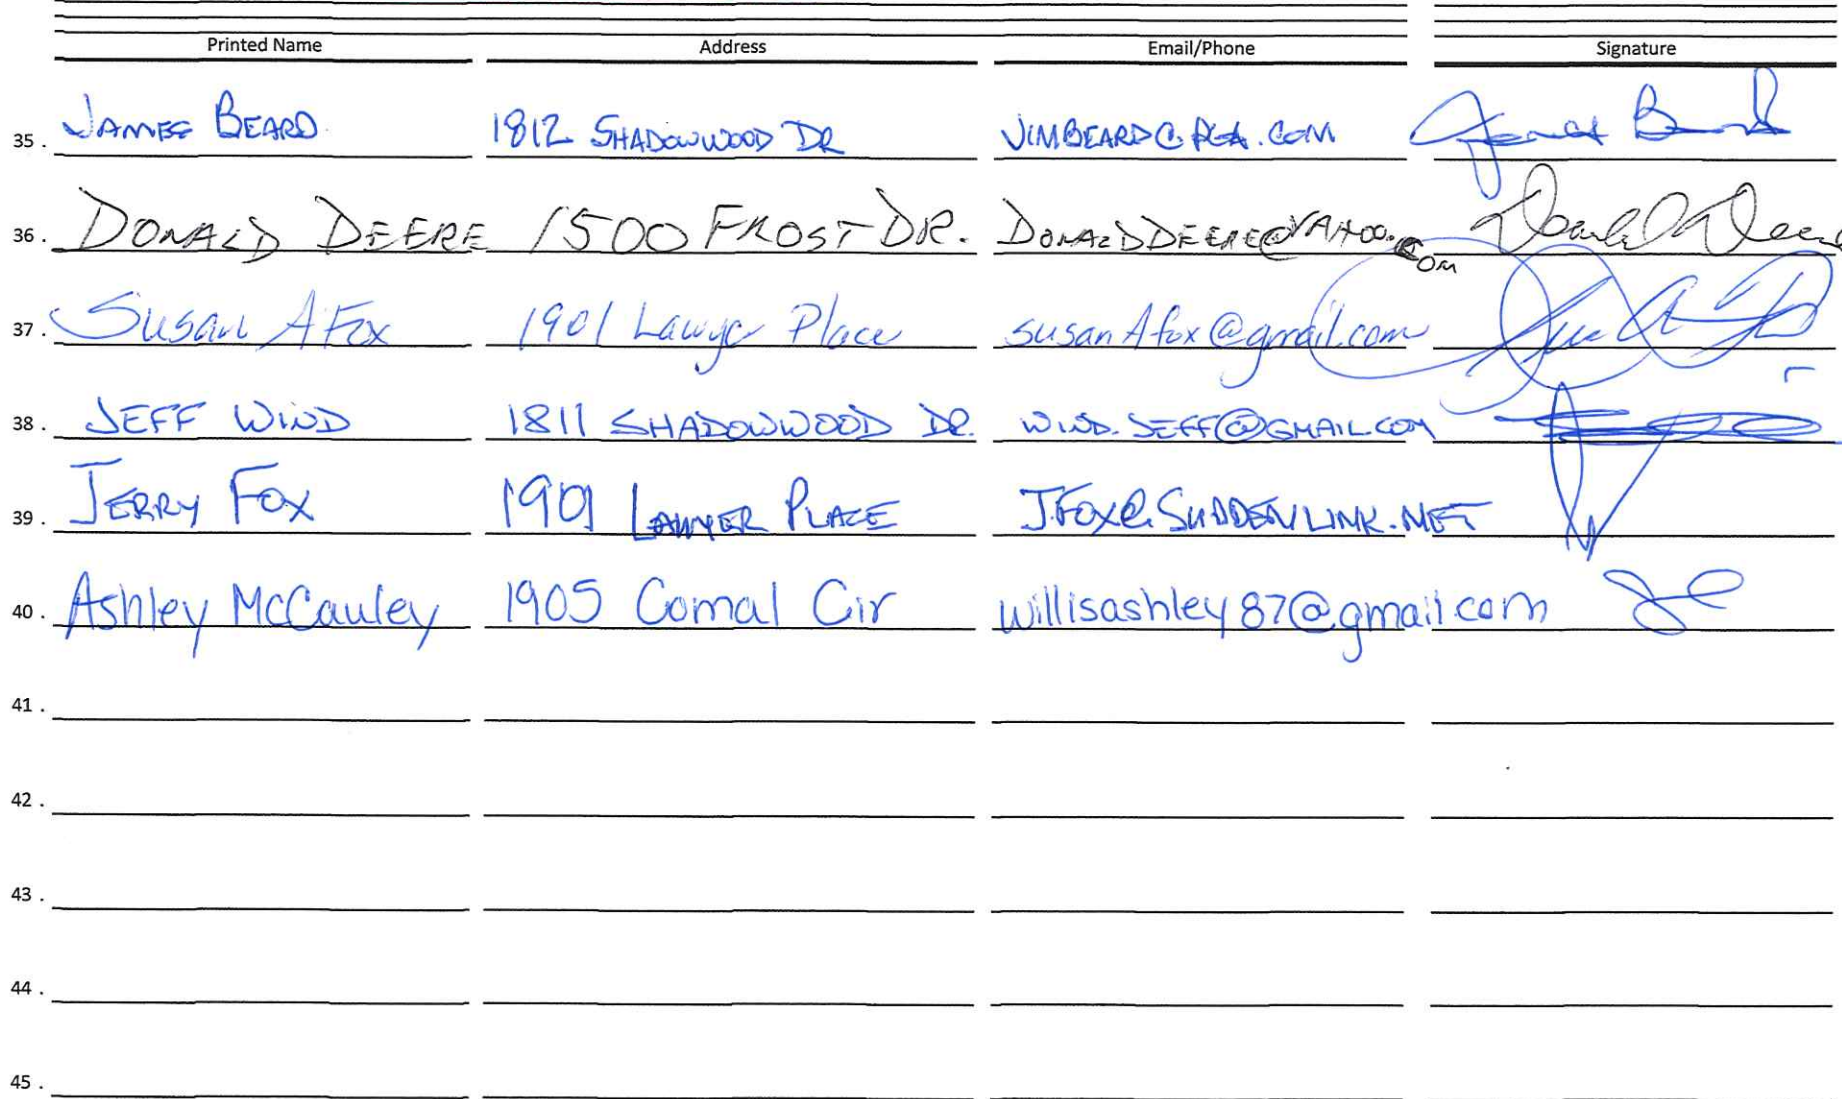 Printed Name Address Email/Phone Signature
35. JAMES BEARD 1812 SHADOWWOOD DR JIMBEARD@PCA.COM James Beard
36. DONALD DEERE 1500 FROST DR. DONALDDEERE@YAHOO.COM Donald Deere
37. Susan A Fox 1901 Lawyer Place susanAfox@gmail.com
38. JEFF WIND 1811 SHADOWWOOD DR. WIND.JEFF@GMAIL.COM
39. JERRY FOX 1901 LAWYER PLACE J.FOX@SUDDENLINK.NET
40. Ashley McCauley 1905 Comal Cir willisashley87@gmail.com
41.
42.
43.
44.
45.